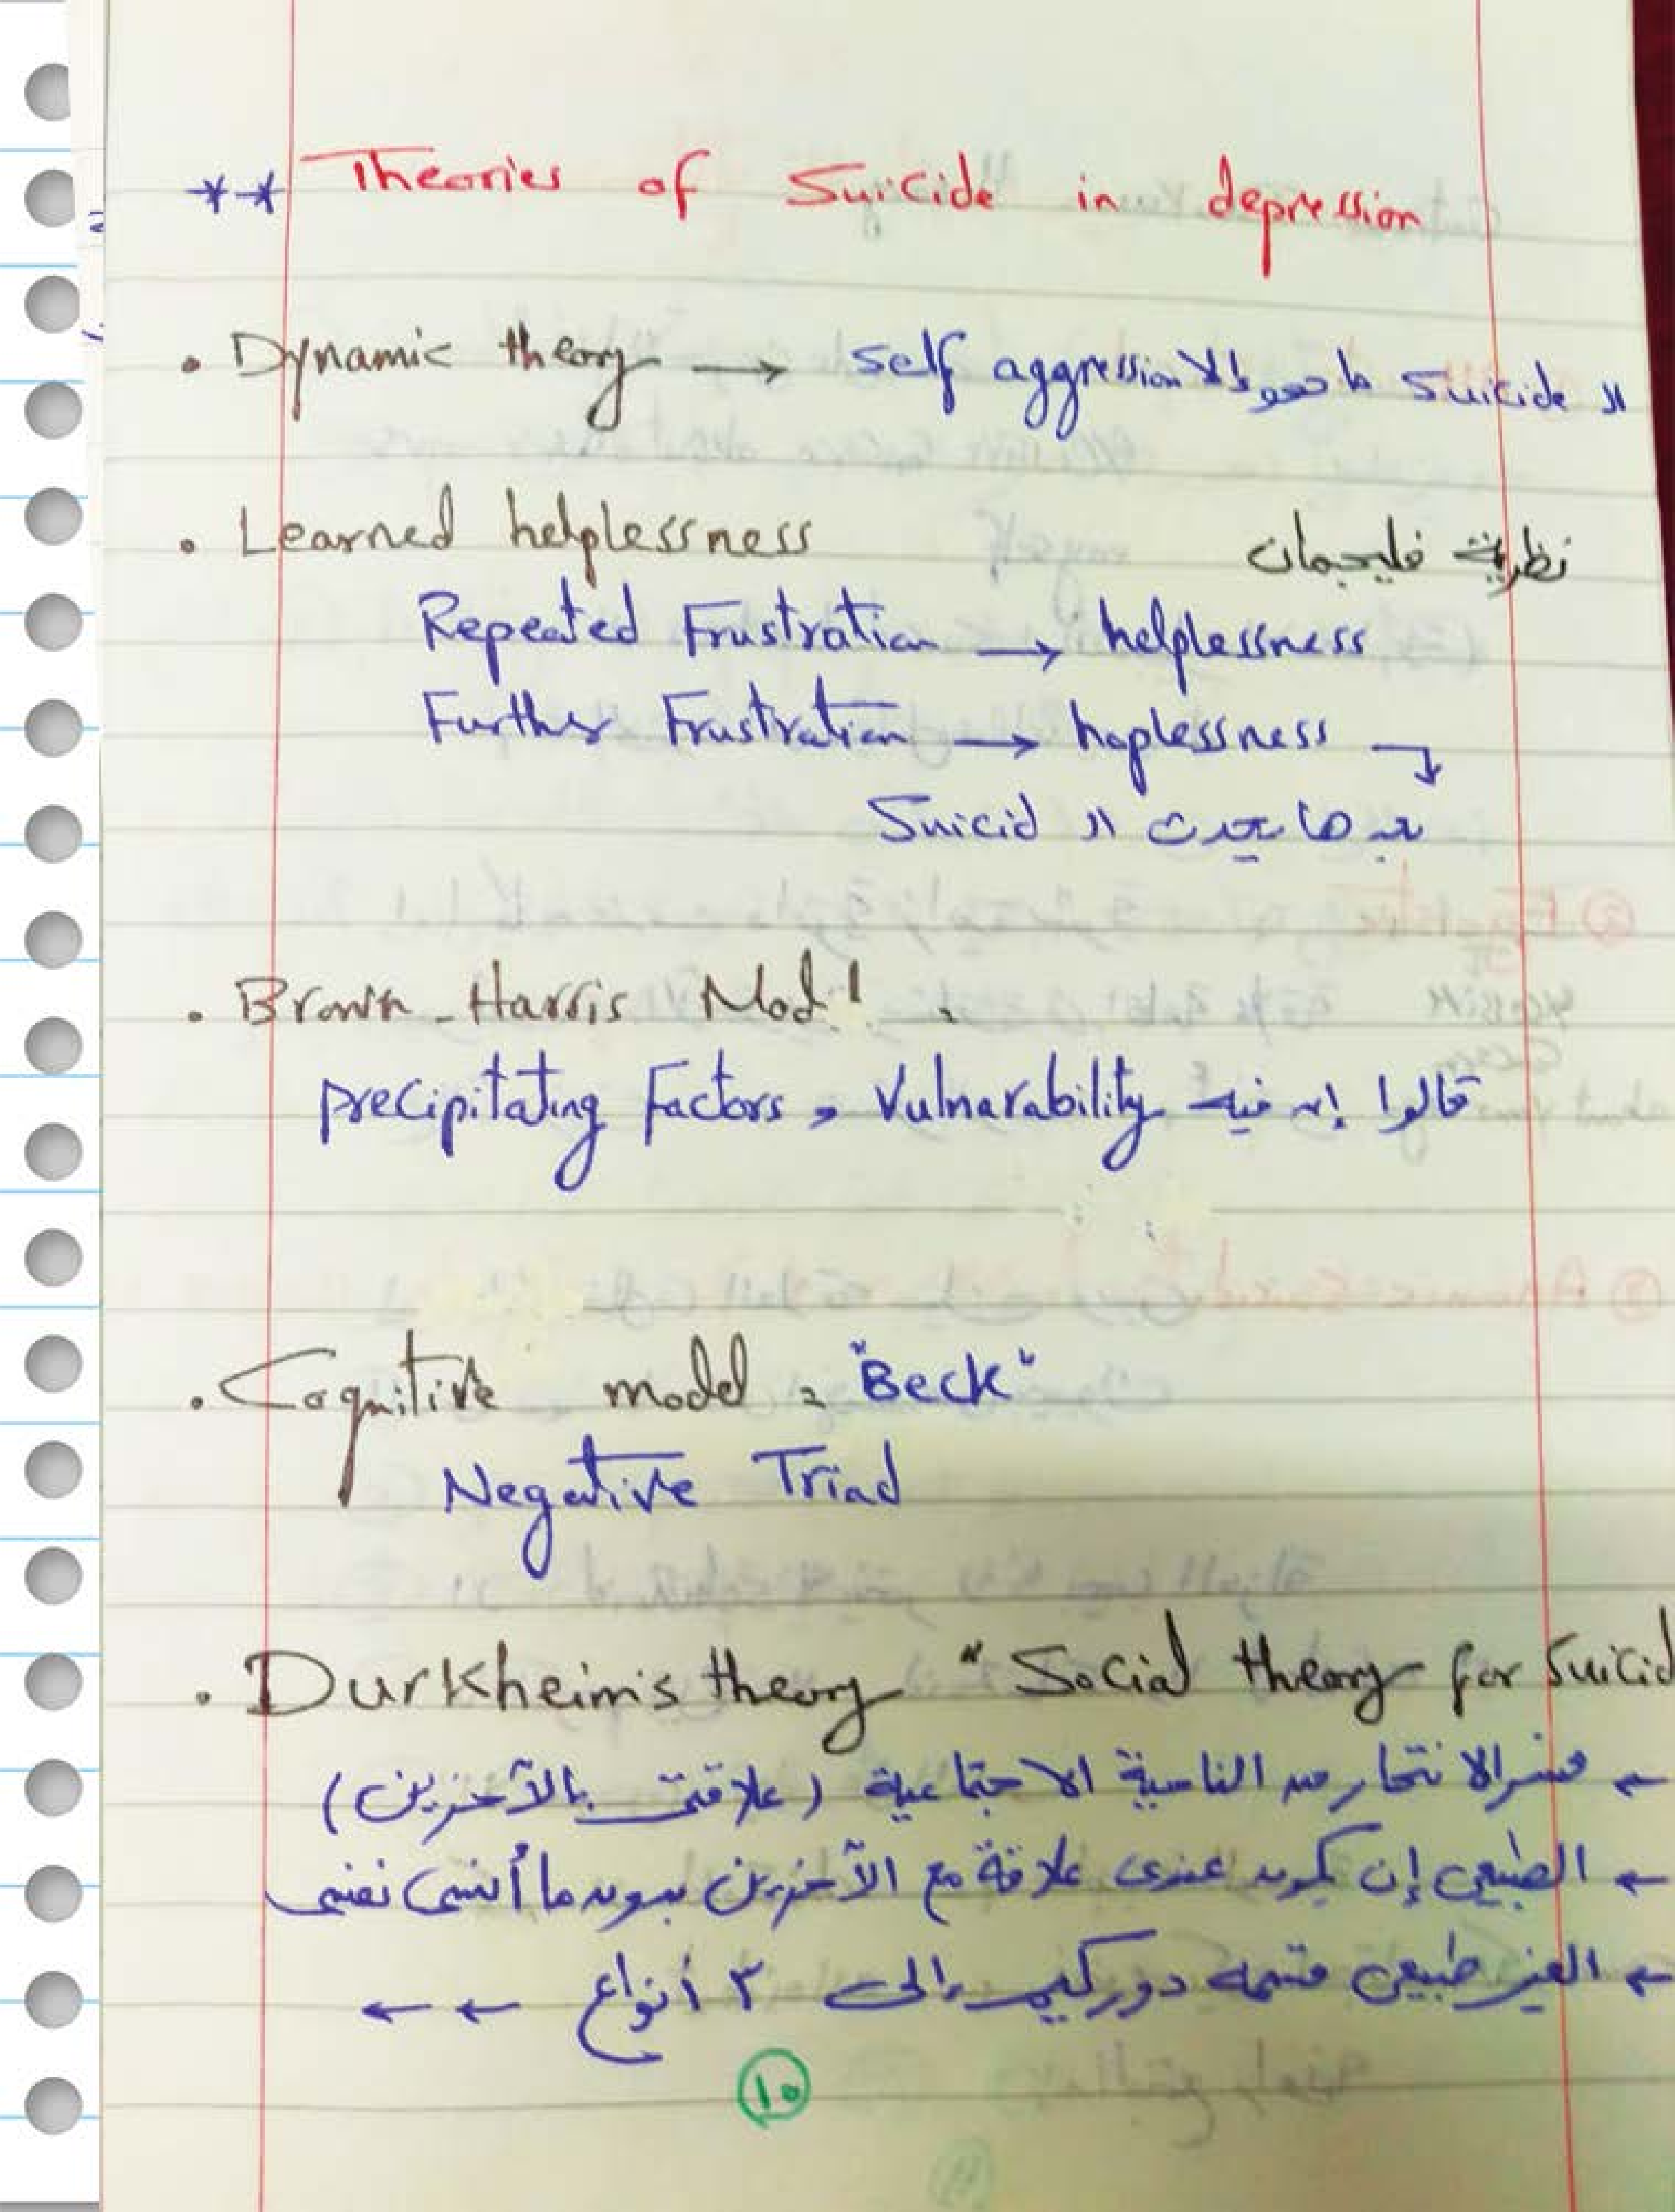 ** Theories of Suicide in depression
• Dynamic theory → الـ Suicide ما هو إلا self aggression
• Learned helplessness نظرية فليجمان
Repeated Frustration → helplessness
Further Frustration → hoplessness
بعدها يحدث الـ Suicid
• Brown-Harris Mod l
قالوا إن فيه Vulnarability , precipitating Factors
• Cognitive model = "Beck"
Negative Triad
• Durkheim's theory "Social theory for Suicid
← فسر الانتحار من الناحية الاجتماعية (علاقتى بالآخرين)
← الطبيعى إن يكون عندى علاقة مع الآخرين بدون ما أنسى نفسى
← الغير طبيعى قسمه دوركيم إلى ٣ أنواع ← ←
10